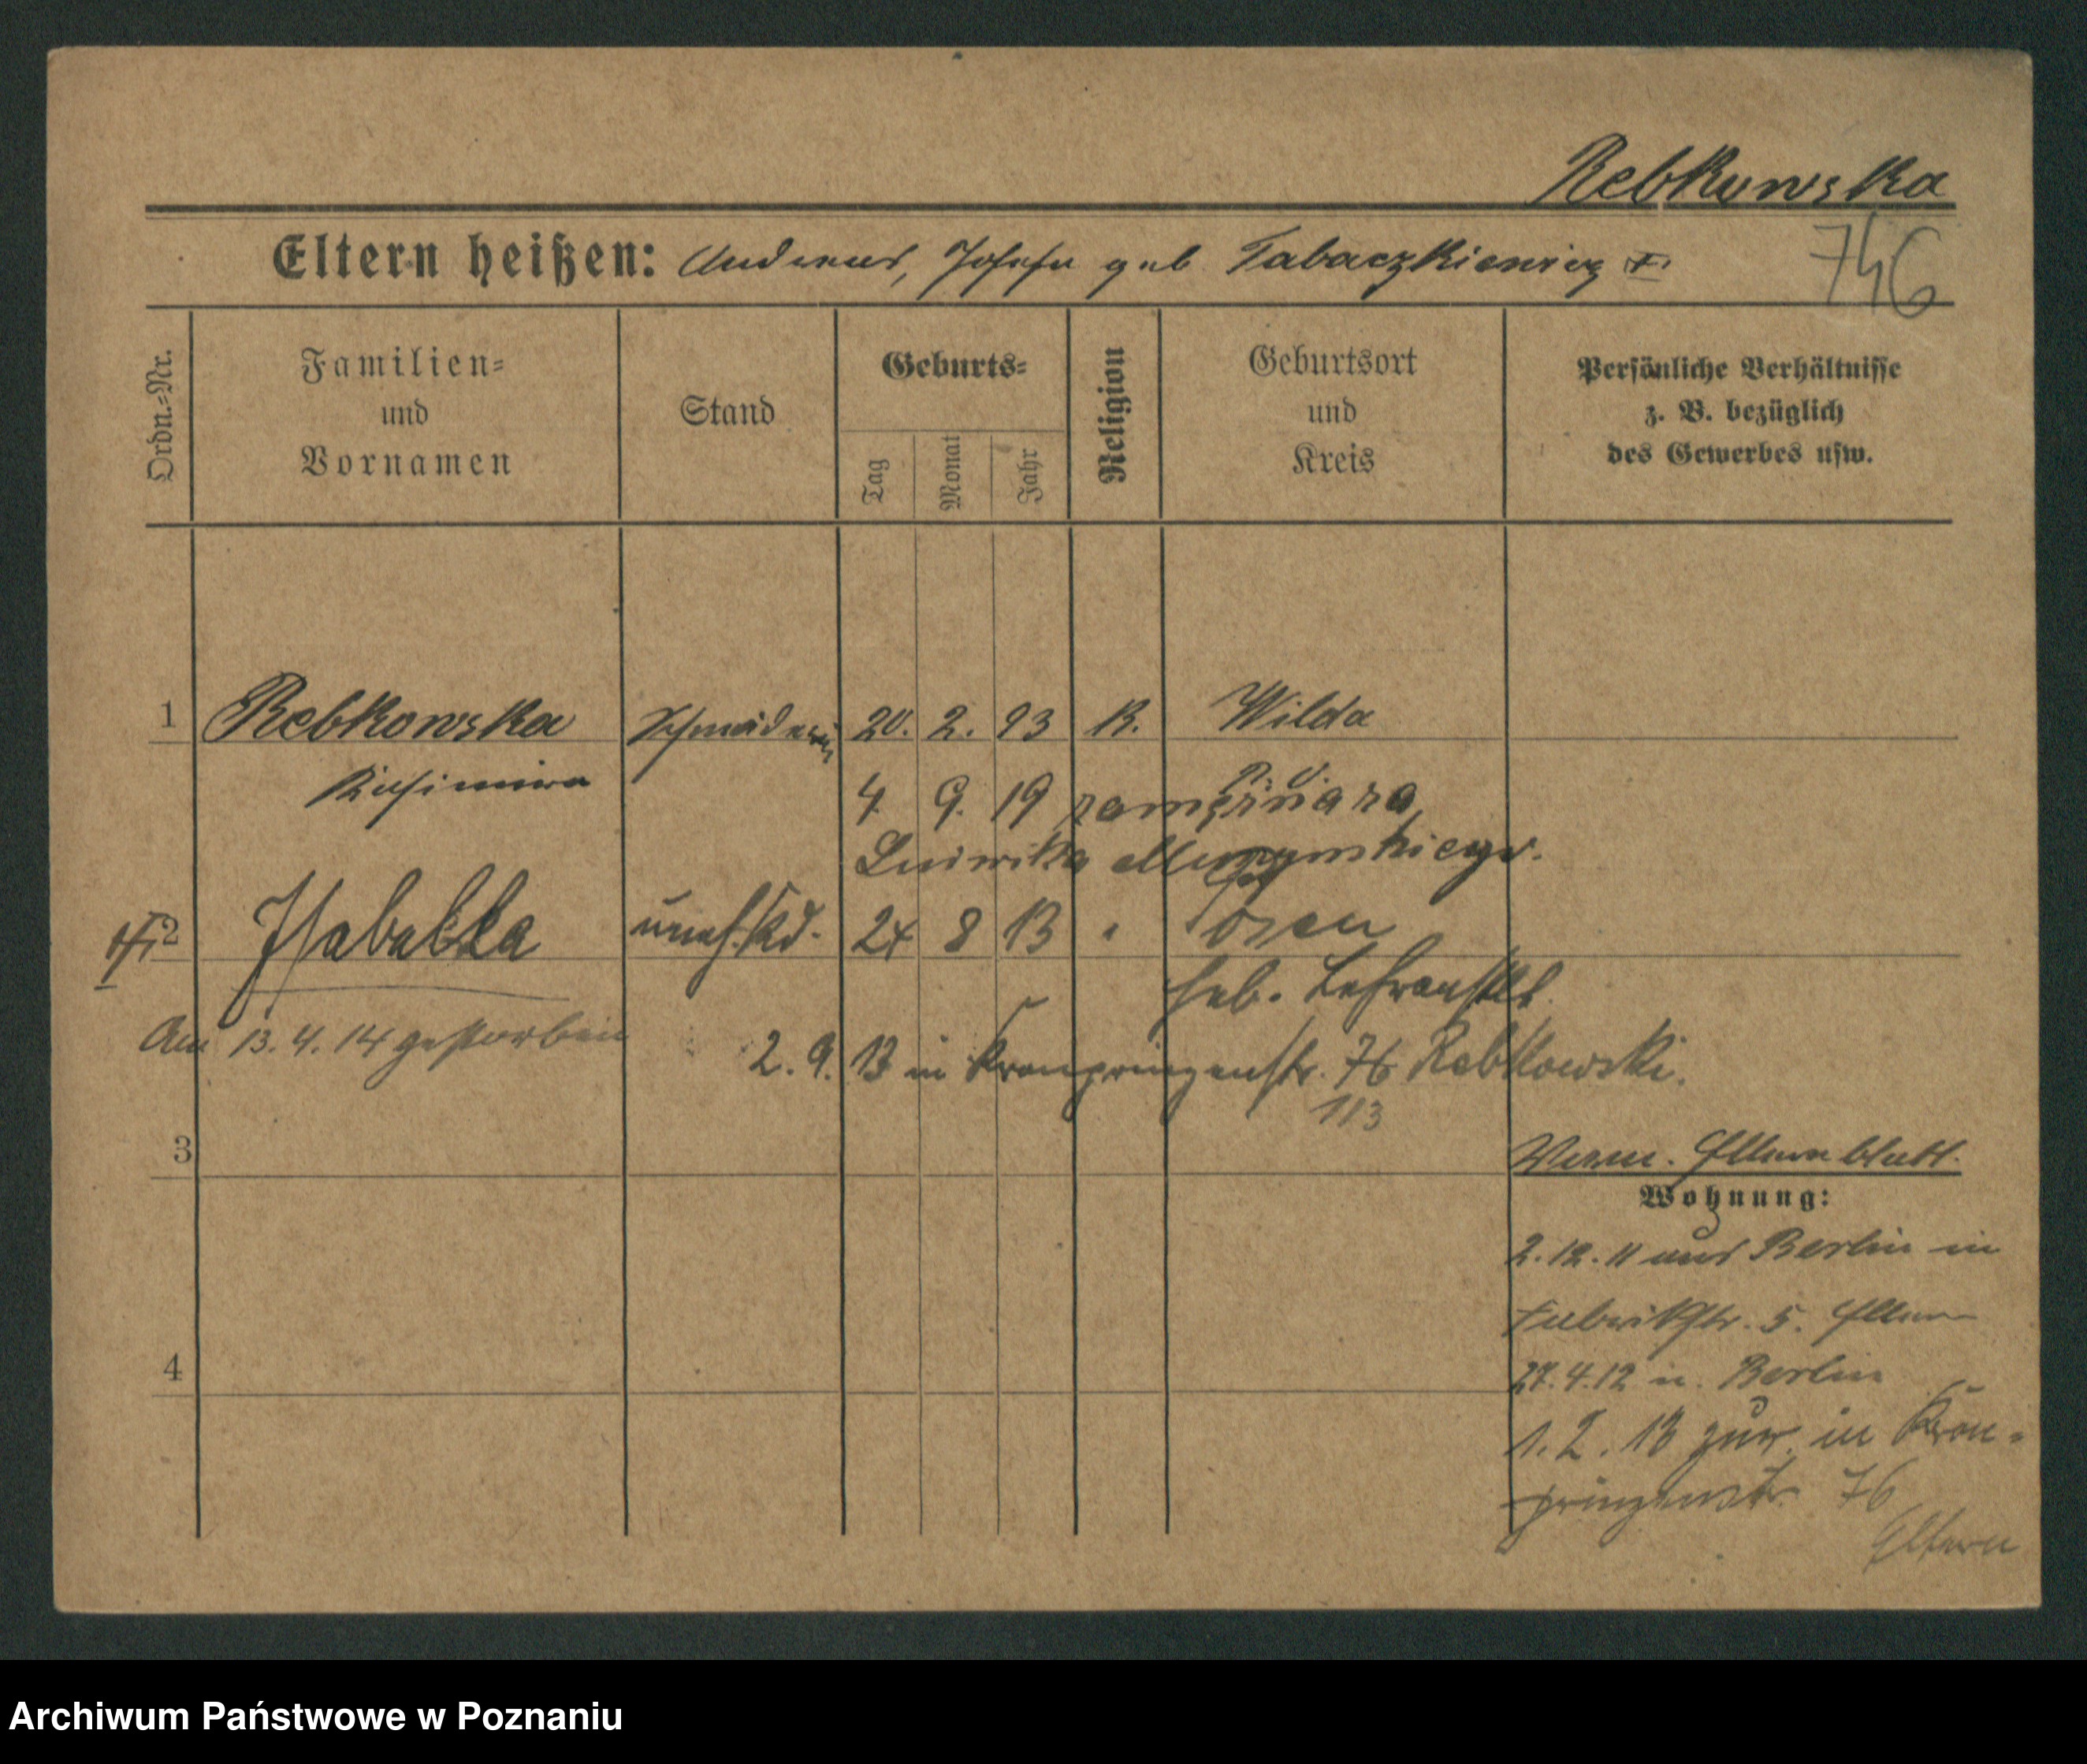 Rebkowska
746
Eltern heißen: Andreas, Josefa geb Tabaczkiewicz
Ordn.-Nr.
Familien-
und
Vornamen
Stand
Geburts-
Tag
Monat
Jahr
Religion
Geburtsort
und
Kreis
Persönliche Verhältnisse
z. B. bezüglich
des Gewerbes usw.
1 Rebkowska 20. 2. 93 K. Wilda
Kasimira
4. 9. 19
Ludwika
2 unehl. Kd. 24 8 13 " Posen
Heb. Lehranstalt.
Am 13. 4. 14 gestorben
2. 9. 13 in Kronprinzenstr. 76 Rebkowski.
113
3
Elternblatt.
Wohnung:
2. 12. 11 aus Berlin in
Fabrikstr. 5. Eltern
27. 4. 12 n. Berlin
1. 2. 13 zur. in Kron-
prinzenstr. 76
Eltern
4
Archiwum Państwowe w Poznaniu